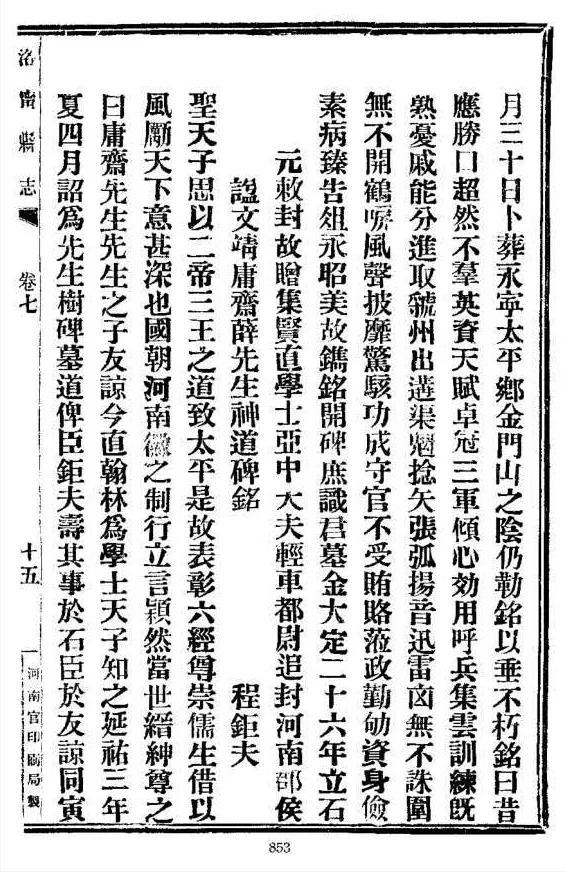 月三十日卜葬永寧太平鄉金門山之陰仍勒銘以垂不朽銘曰昔
應勝口超然不羣英資天賦卓冠三軍傾心効用呼兵集雲訓練旣
熟憂戚能分進取虢州出遘渠魁捻矢張弧揚音迅雷囟無不誅圍
無不開鶴唳風聲披靡驚駭功成守官不受賄賂蒞政勤劬資身儉
素病臻告殂永昭美故鐫銘開碑庶識君墓金大定二十六年立石
元敕封故贈集賢直學士亞中大夫輕車都尉追封河南郡侯
諡文靖庸齋薛先生神道碑銘 程鉅夫
聖天子思以二帝三王之道致太平是故表彰六經尊崇儒生借以
風勵天下意甚深也國朝河南徽之制行立言穎然當世縉紳尊之
曰庸齋先生先生之子友諒今直翰林爲學士天子知之延祐三年
夏四月詔爲先生樹碑墓道俾臣鉅夫壽其事於石臣於友諒同寅
洛甯縣志
卷七
十五
河南官印刷局製
853